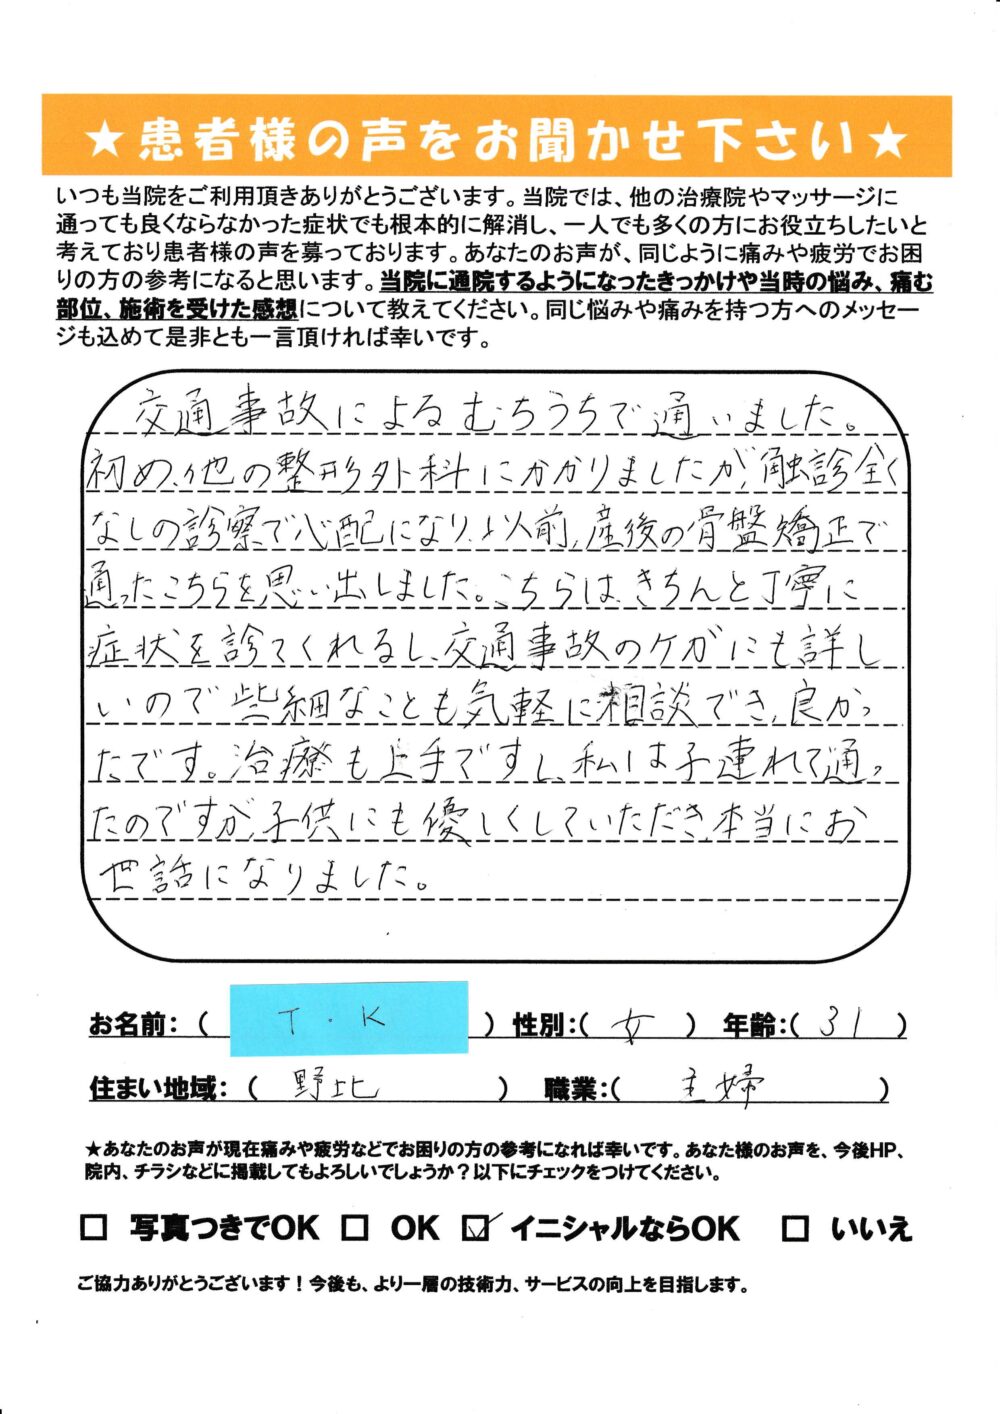 ★患者様の声をお聞かせ下さい★
いつも当院をご利用頂きありがとうございます。当院では、他の治療院やマッサージに
通っても良くならなかった症状でも根本的に解消し、一人でも多くの方にお役立ちしたいと
考えており患者様の声を募っております。あなたのお声が、同じように痛みや疲労でお困
りの方の参考になると思います。当院に通院するようになったきっかけや当時の悩み、痛む
部位、施術を受けた感想について教えてください。同じ悩みや痛みを持つ方へのメッセー
ジも込めて是非とも一言頂ければ幸いです。
交通事故によるむちうちで通いました。
初め、他の整形外科にかかりましたが、触診全く
なしの診察で心配になり、以前、産後の骨盤矯正で
通ったこちらを思い出しました。こちらは、きちんと丁寧に
症状を診てくれるし、交通事故のケガにも詳し
いので些細なことも気軽に相談でき、良かっ
たです。治療も上手ですし、私は子連れで通っ
たのですが、子供にも優しくしていただき、本当にお
世話になりました。
お名前:( T.K ) 性別:( 女 ) 年齢:( 31 )
住まい地域:( 野比 ) 職業:( 主婦 )
★あなたのお声が現在痛みや疲労などでお困りの方の参考になれば幸いです。あなた様のお声を、今後HP、
院内、チラシなどに掲載してもよろしいでしょうか?以下にチェックをつけてください。
□ 写真つきでOK □ OK ☑ イニシャルならOK □ いいえ
ご協力ありがとうございます!今後も、より一層の技術力、サービスの向上を目指します。